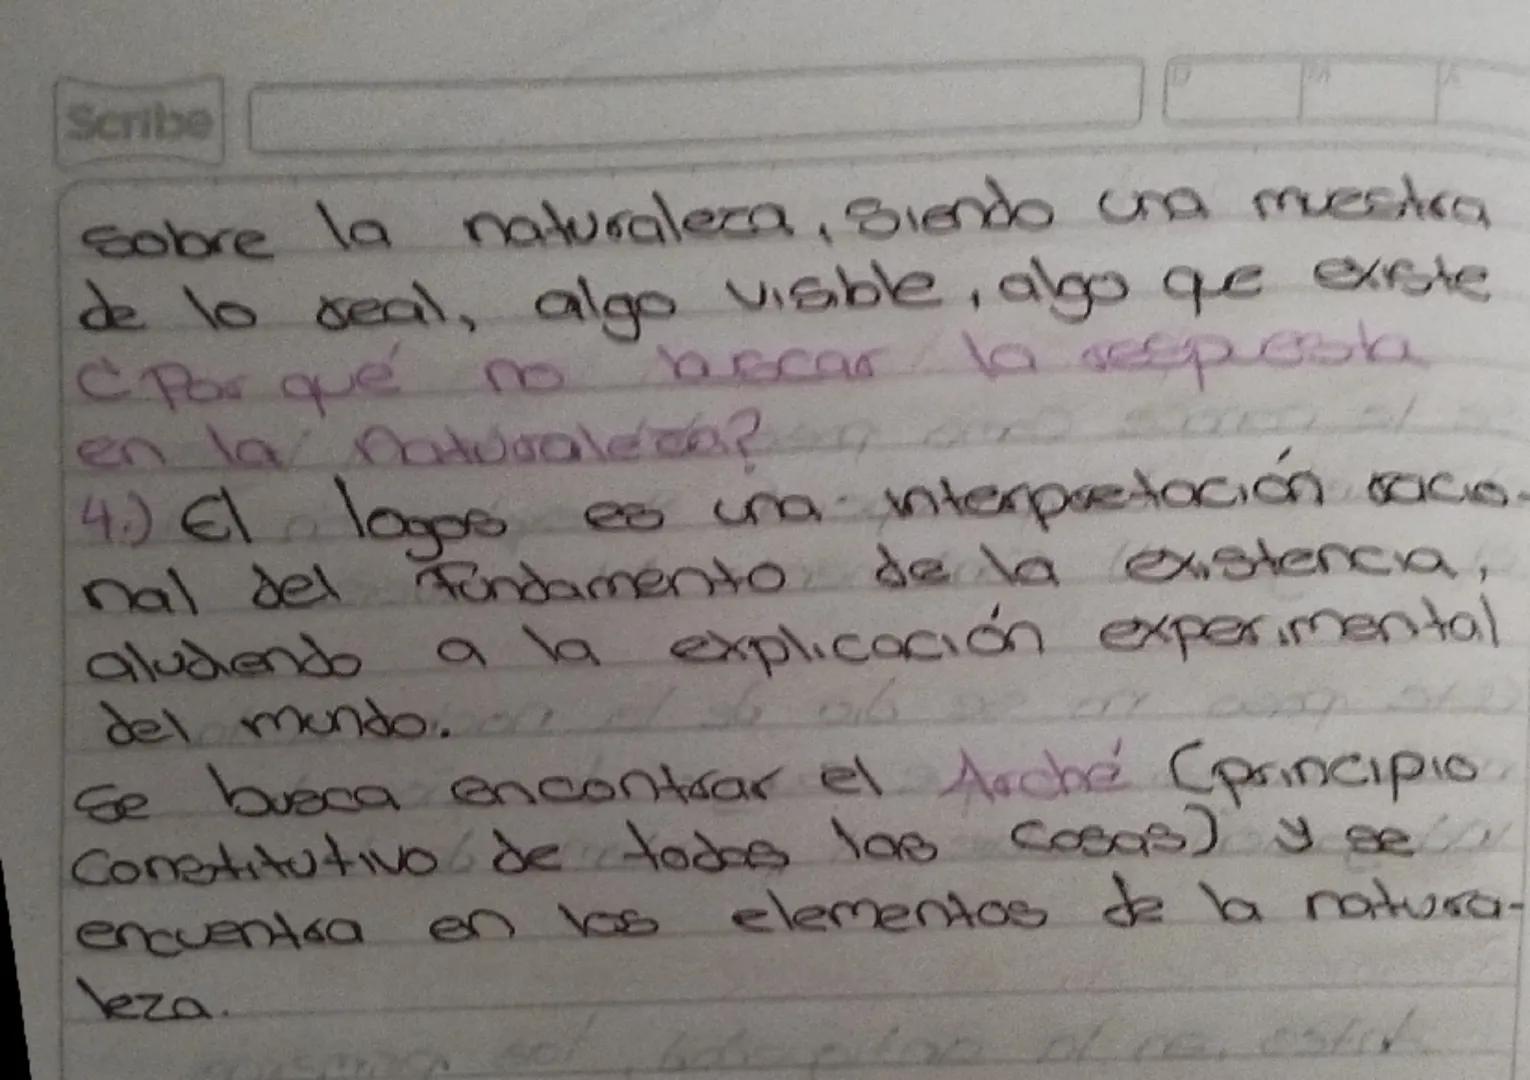 Scribe
sobre la naturaleza, siendo una muestra
de lo real, algo visible, algo que existe
¿Por qué no buscar la respuesta
en la naturaleza?
4.) El logos es una interpretación racio-
nal del fundamento de la existencia,
aludiendo a la explicación experimental
del mundo.
Se busca encontrar el Arché (principio
constitutivo de todas las cosas) y se
encuentra en los elementos de la natura-
leza.